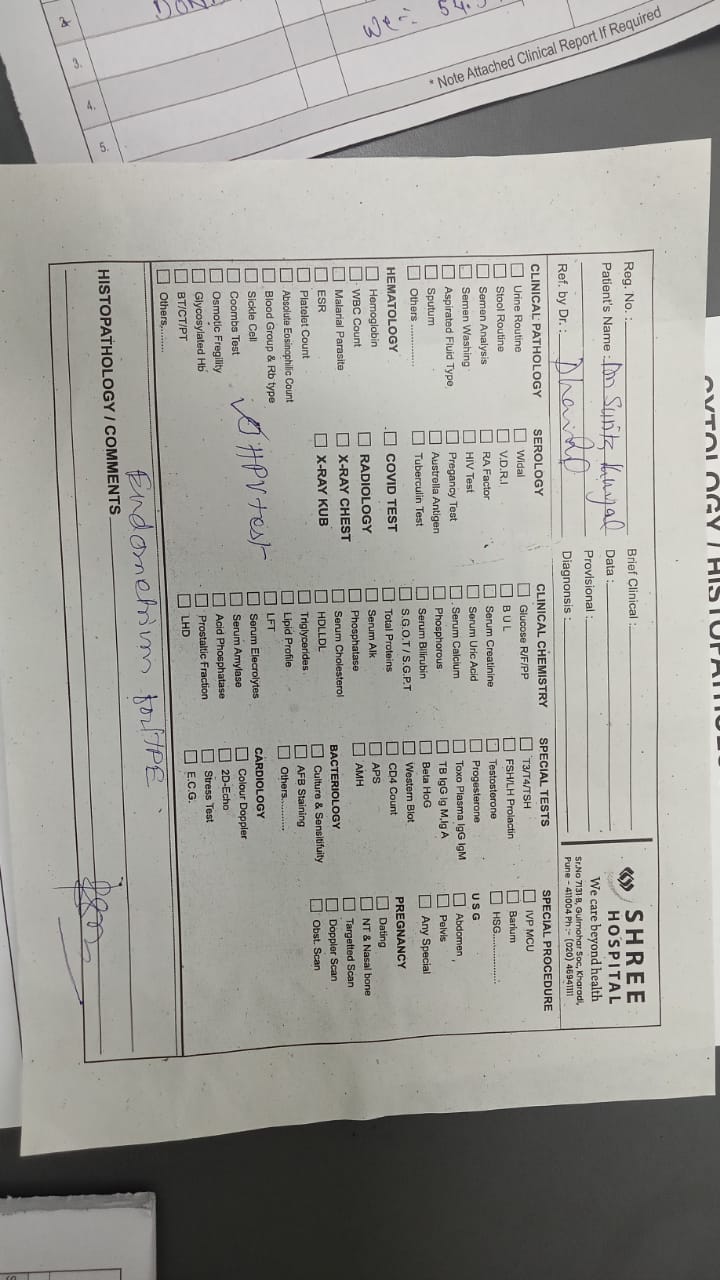 * Note Attached Clinical Report If Required
3.
4.
5.
SHREE
HOSPITAL
We care beyond health
Sr.No 7131 B, Gulmohar Soc, Kharadi,
Pune - 411004 Ph :- (020) 46941111
Reg. No. :
Patient's Name :
Ref. by Dr. :
Brief Clinical :
Data :
Provisional :
Diagnonsis :
CLINICAL PATHOLOGY
Urine Routine
Stool Routine
Semen Analysis
Semen Washing
Aspirated Fluid Type
Sputum
Others ..............
HEMATOLOGY
Hemoglobin
WBC Count
Malarial Parasite
ESR
Platelet Count
Absolute Eosinophilic Count
Blood Group & Rb type
Sickle Cell
Coombs Test
Osmotic Fregility
Glycosylated Hb
BT/CT/PT
Others,.........
SEROLOGY
Widal
V.D.R.I
RA Factor
HIV Test
Pregancy Test
Australia Antigen
Tuberculin Test
COVID TEST
RADIOLOGY
X-RAY CHEST
X-RAY KUB
HPV test
CLINICAL CHEMISTRY
Glucose R/F/PP
B U L
Serum Creatinine
Serum Uric Acid
Serum Calcium
Phosphorous
Serum Bilirubin
S.G.O.T / S.G.P.T
Total Proteins
Serum Alk
Phosphatase
Serum Cholesterol
HDLLDL
Triglycerides
Lipid Profile
LFT
Serum Elecrolytes
Serum Amylase
Acid Phosphatase
Prostallic Fraction
LHD
SPECIAL TESTS
T3/T4/TSH
FSH/LH Prolactin
Testosterone
Progesterone
Toxo Plasma IgG IgM
TB IgG Ig M,Ig A
Beta HoG
Western Blot
CD4 Count
APS
AMH
BACTERIOLOGY
Culture & Sensitifuily
AFB Staining
Others...........
CARDIOLOGY
Colour Doppler
2D-Echo
Stress Test
E.C.G.
SPECIAL PROCEDURE
IVP MCU
Barium
HSG................
U S G
Abdomen ,
Pelvis
Any Special
PREGNANCY
Dating
NT & Nasal bone
Targetted Scan
Doppler Scan
Obst. Scan
Endometrium for HPE
HISTOPATHOLOGY / COMMENTS